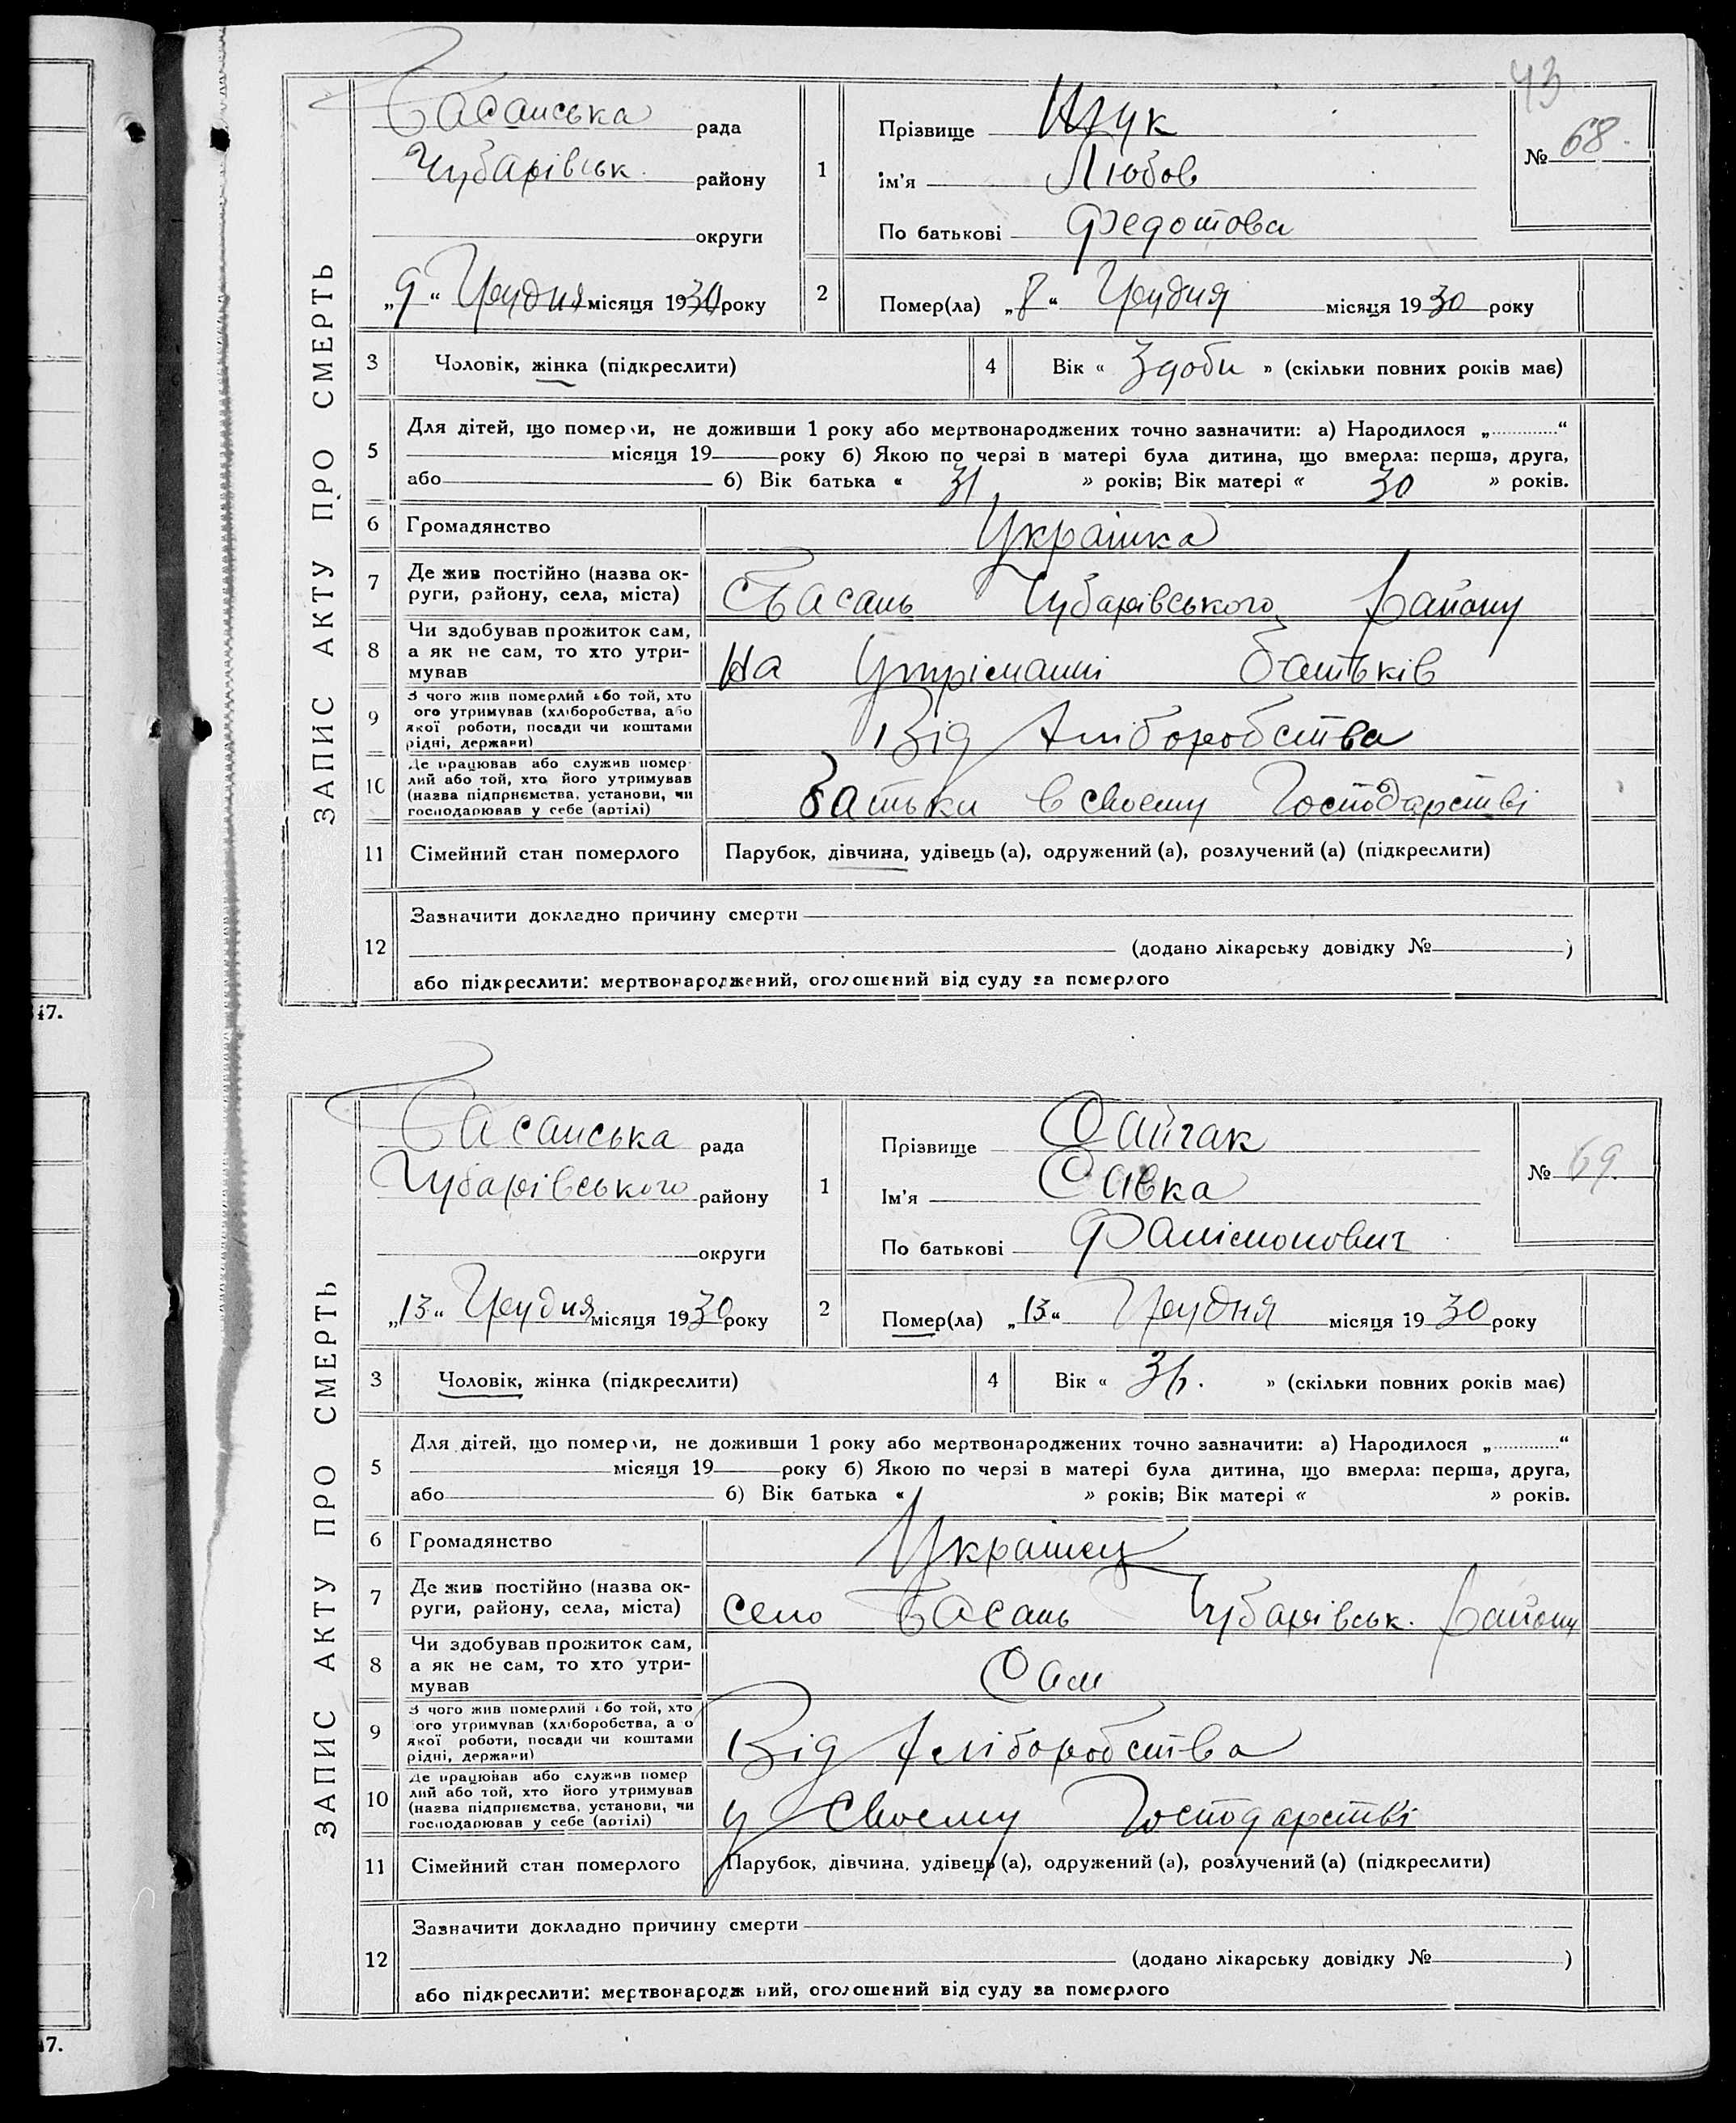 43
ЗАПИС АКТУ ПРО СМЕРТЬ
Басанська рада
Чубарівськ. району
округи
„9“ Грудня місяця 1930 року
1
Прізвище Щук
ім'я Любов
По батькові Федотова
№ 68.
2
Помер(ла) „8“ Грудня місяця 1930 року
3
Чоловік, жінка (підкреслити)
4
Вік « 3 доби » (скільки повних років має)
5
Для дітей, що померли, не доживши 1 року або мертвонароджених точно зазначити: а) Народилося „..........“
місяця 19 року б) Якою по черзі в матері була дитина, що вмерла: перша, друга,
або б) Вік батька « 31 » років; Вік матері « 30 » років.
6
Громадянство
Українка
7
Де жив постійно (назва ок-
руги, району, села, міста)
Басань Чубарівського Району
8
Чи здобував прожиток сам,
а як не сам, то хто утри-
мував
На утріманні батьків
9
З чого жив померлий або той, хто
ого утримував (хліборобства, або
якої роботи, посади чи коштами
рідні, держави)
Від Хліборобства
10
Де працював або служив помер
лий або той, хто його утримував
(назва підприємства, установи, чи
господарював у себе (артілі)
Батьки в своему Господарстві
11
Сімейний стан померлого
Парубок, дівчина, удівець (а), одружений (а), розлучений (а) (підкреслити)
12
Зазначити докладно причину смерти
(додано лікарську довідку № )
або підкреслити: мертвонароджений, оголошений від суду за померлого
47.
ЗАПИС АКТУ ПРО СМЕРТЬ
Басанська рада
Чубарівського району
округи
„13“ Грудня місяця 1930 року
1
Прізвище Сайчак
Ім'я Савка
По батькові Філімонович
№ 69.
2
Помер(ла) „13“ Грудня місяця 1930 року
3
Чоловік, жінка (підкреслити)
4
Вік « 36. » (скільки повних років має)
5
Для дітей, що померли, не доживши 1 року або мертвонароджених точно зазначити: а) Народилося „..........“
місяця 19 року б) Якою по черзі в матері була дитина, що вмерла: перша, друга,
або б) Вік батька « » років; Вік матері « » років.
6
Громадянство
Українец
7
Де жив постійно (назва ок-
руги, району, села, міста)
село Басань Чубарівськ. Району
8
Чи здобував прожиток сам,
а як не сам, то хто утри-
мував
Сам
9
З чого жив померлий або той, хто
ого утримував (хліборобства, а о
якої роботи, посади чи коштами
рідні, держави)
Від Хліборобства
10
Де працював або служив помер
лий або той, хто його утримував
(назва підприємства, установи, чи
господарював у себе (артілі)
у своему Господарстві
11
Сімейний стан померлого
Парубок, дівчина, удівець (а), одружений (а), розлучений (а) (підкреслити)
12
Зазначити докладно причину смерти
(додано лікарську довідку № )
або підкреслити: мертвонародж ний, оголошений від суду за померлого
47.